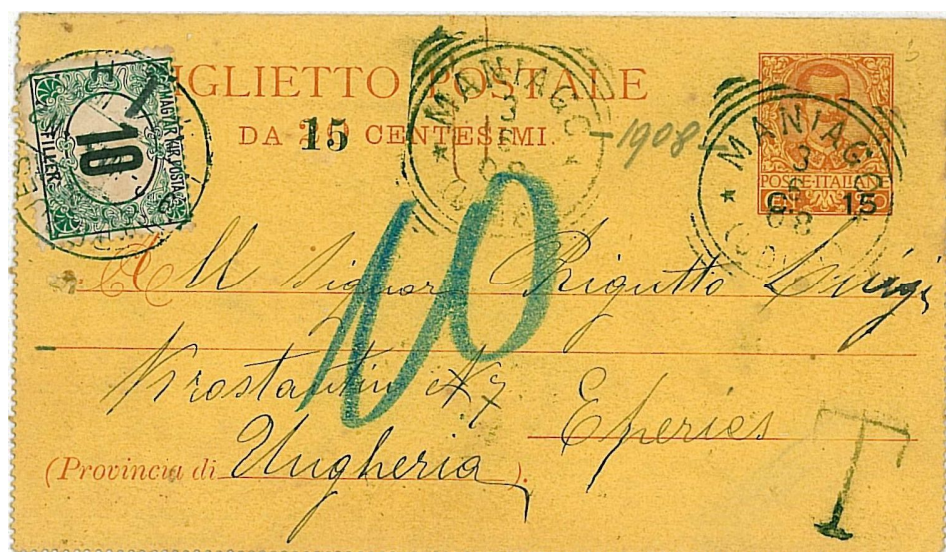 BIGLIETTO POSTALE
DA 15 CENTESIMI.
MAGYAR KIR. POSTA
10
FILLÉR
MANIAGO
3
MANIAGO
3
1908
POSTE-ITALIANE
C. 15
10
Al Signore Rigutto Luigi
N 7 Eperies
(Provincia di Ungheria).
T